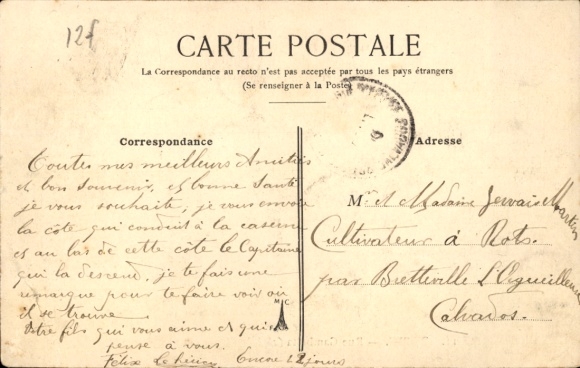 12f
CARTE POSTALE
La Correspondance au recto n'est pas acceptée par tous les pays étrangers
(Se renseigner à la Poste)
Correspondance
Adresse
Toutes mes meilleurs Amitiés
et bon souvenir, et bonne santé
je vous souhaite, je vous envoie
la côte qui conduit à la caserne
et au bas de cette côte le Capitaine
qui la descend, je te fais une
remarque pour te faire voir où
il se trouve
Votre fils qui vous aime et qui
pense à vous.
Félix Encore 22 jours
M C
Mr et Madame Gervais Martin
Cultivateur à Rots.
par Bretteville L'Orgueilleuse
Calvados.